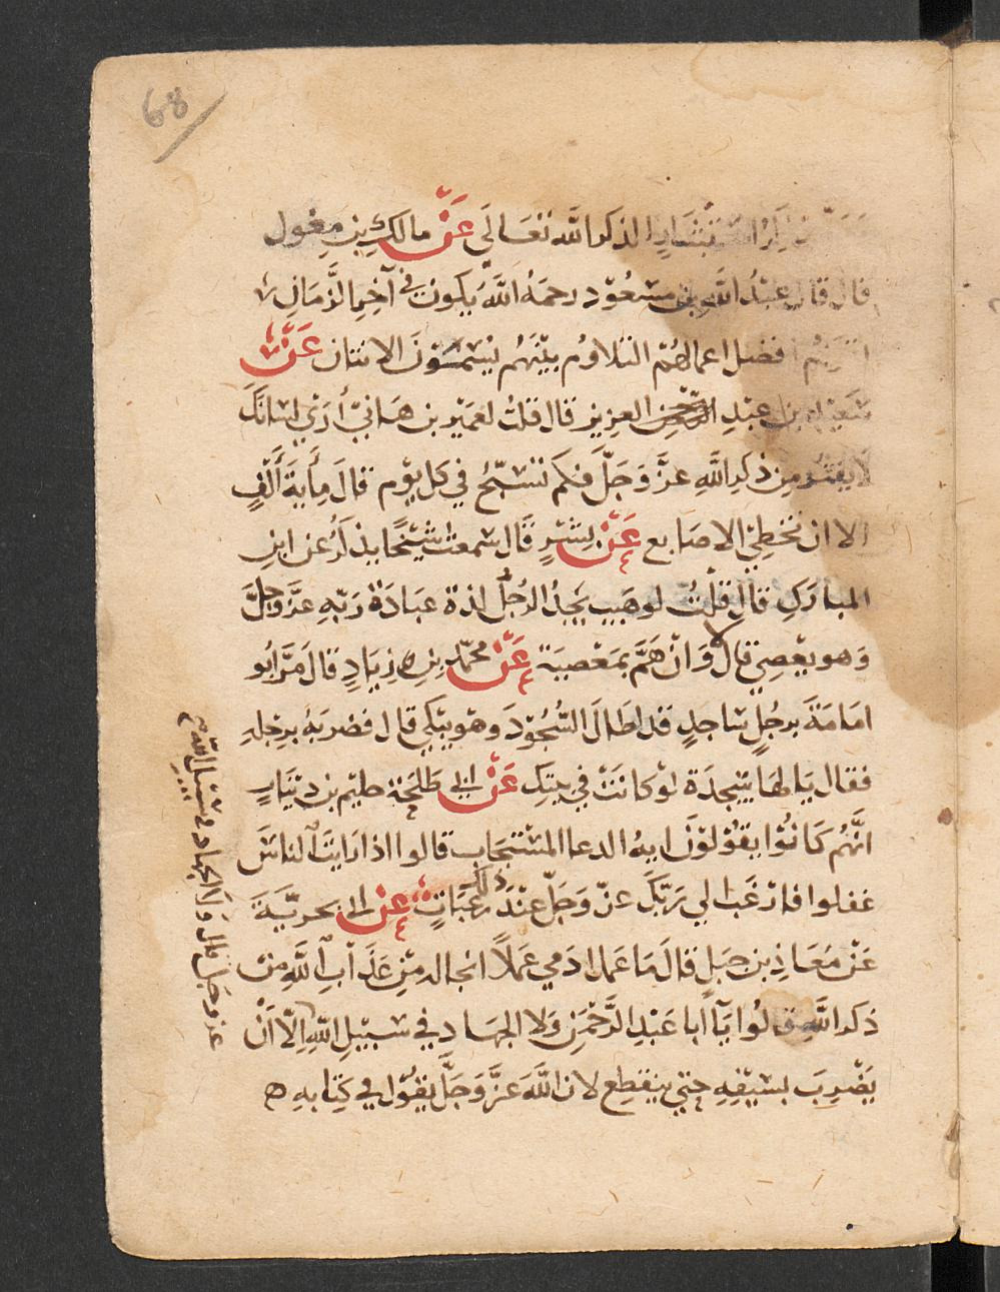 68
لذكر الله تعالى عَنْ مالك بن مِغول
قال قال عبْدُ الله بن مسْعُوْد رحمَهُ اللَّه يكون في آخِر الزَّمَانِ
افضل اعمالهُم التلاوُم بيْنَهُم يُسَمَّوْنَ الانتان عَنْ
سَعِيْد بن عبْدِ العزيز قال قلتُ لعُمَيْر بن هَانئ أرَى لسَانَكَ
لَا يَفْتُر مِن ذكر اللَّهِ عزَّ وَجَلَّ فكم تسَبّحُ في كل يوْم قالَ مِأيةَ ألفٍ
الا ان تخطِئ الاصَابع عَنْ بِشْرٍ قَال سَمعتُ شَيْخًا يذكرُ عن ابنِ
المبارَكِ قال قلْتُ لوهَيب يَجدُ الرجُلُ لذة عبَادَة رَبّهِ عَزَّ وجَلَّ
وَهو يعْصِي قال لا وَ انْ هَمَّ بمَعْصيَة عَنْ محمّد بنِ زيَادٍ قالَ مَرَّ ابُو
امَامَةَ برجُلٍ سَاجدٍ قد اطالَ السُّجُوْدَ وهْو يبْكي قال فضربَهُ برِجْلهِ
فقال يَا لهَا سَجدَة لوْ كانَتْ في بيتِكَ عَنْ ابي طلحَة حليم بن ديْنَارٍ
انَّهُم كَانُوْا يقوْلوْنَ ايهُ الدعا المُسْتجَاب قالوا اذا رَايتَ الناسَ
غفلوا فارْغَب الي رَبّكَ عزّ وَجَلّ عنْدَ ذلك رَغَبَاتٍ عَنْ ابي بحريَّةَ
عَنْ مُعَاذِ بن جَبَلٍ قالَ مَا عَملَ ادَمي عَمَلًا انجا له مِنْ عَذَابِ اللَّهِ من
ذكر اللَّهِ قالُوا يَا أبا عَبْدِ الرَّحْمَنِ وَلا الجهَاد في سَبيْلِ اللّهِ إلّا أنْ
يَضْرِبَ بسَيْفِهِ حتى ينقطِع لان اللَّهَ عزَّ وَجَلَّ يقوْل في كِتَابهِ
عز وجل قال وَلا الجهاد في سَبيْل اللّه